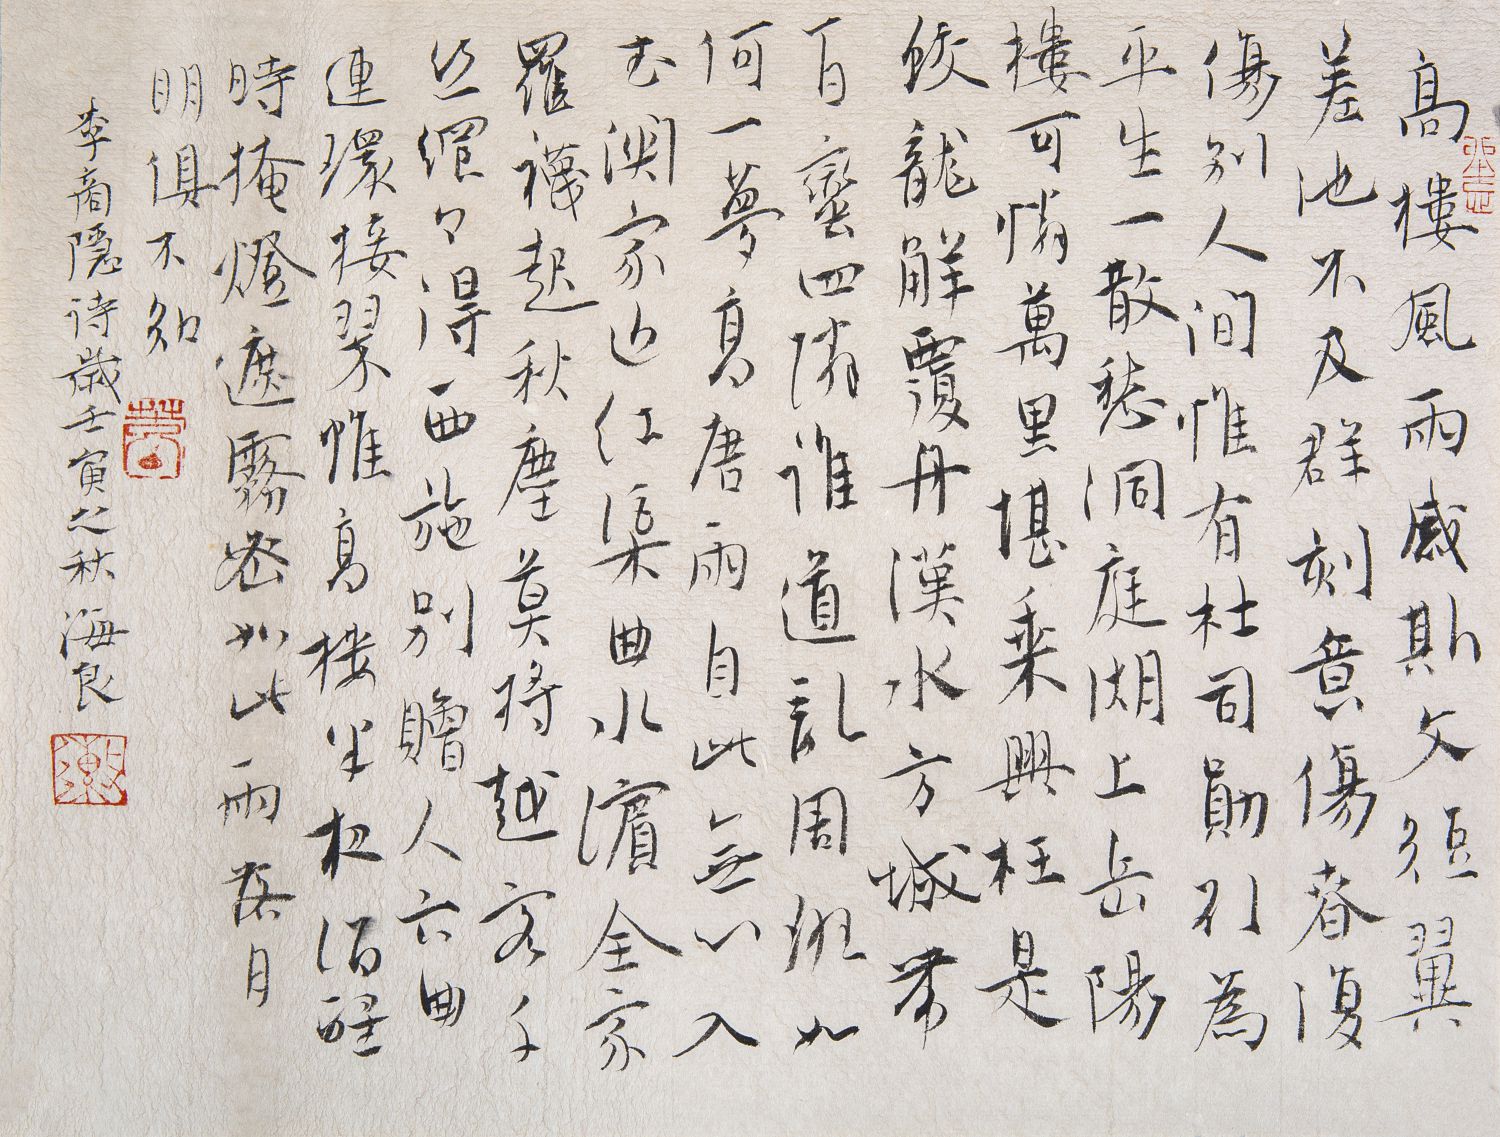 高樓風雨感斯文短翼
差池不及群刻意傷春復
傷別人间惟有杜司勛為
平生一散愁洞庭湖上岳陽
樓可憐萬里堪乘興枉是
蛟龍解覆舟漢水方城帶
百蠻四隣誰道乱周班如
何一夢高唐雨自此無心入
武関家近红渠曲水濱全家
羅襪起秋塵莫將越客千
丝網々得西施別贈人六曲
連環接翠帷高楼半夜酒醒
時掩燈遮霧密如此雨落月
明俱不知
李商隱诗歲壬寅之秋海良